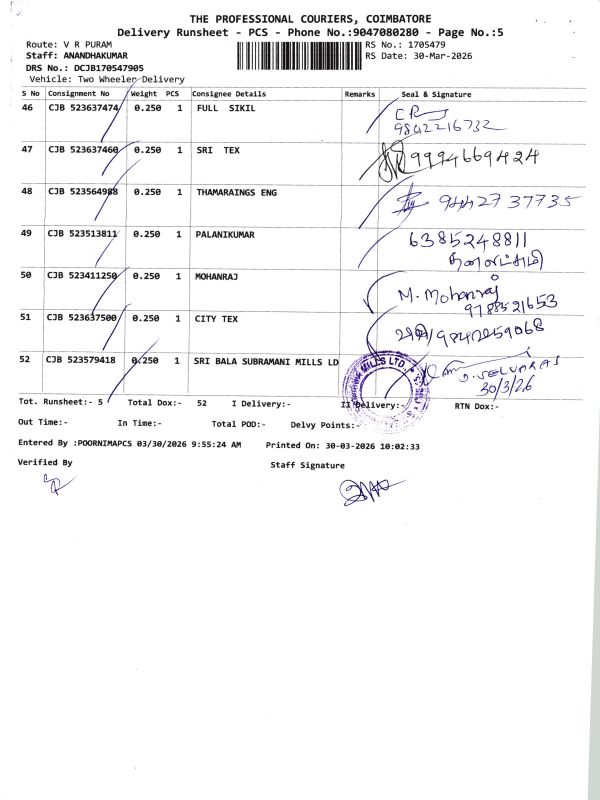 THE PROFESSIONAL COURIERS, COIMBATORE
Delivery Runsheet - PCS - Phone No.:9047080280 - Page No.:5
Route: V R PURAM
RS No.: 1705479
Staff: ANANDHAKUMAR
RS Date: 30-Mar-2026
DRS No.: DCJB170547905
Vehicle: Two Wheeler Delivery
S No Consignment No Weight PCS Consignee Details Remarks Seal & Signature
46 CJB 523637474 0.250 1 FULL SIKIL
9842216732
47 CJB 523637460 0.250 1 SRI TEX 9994669424
48 CJB 523564988 0.250 1 THAMARAINGS ENG 94427 37735
49 CJB 523513811 0.250 1 PALANIKUMAR 6385248811
தனலட்சுமி
50 CJB 523411250 0.250 1 MOHANRAJ M. Mohanraj
9788521653
51 CJB 523637500 0.250 1 CITY TEX 9842059068
52 CJB 523579418 0.250 1 SRI BALA SUBRAMANI MILLS LD MILLS LTD. SELVARAJ
30/3/26
Tot. Runsheet:- 5 Total Dox:- 52 I Delivery:- II Delivery:- RTN Dox:-
Out Time:- In Time:- Total POD:- Delvy Points:-
Entered By :POORNIMAPCS 03/30/2026 9:55:24 AM Printed On: 30-03-2026 10:02:33
Verified By Staff Signature